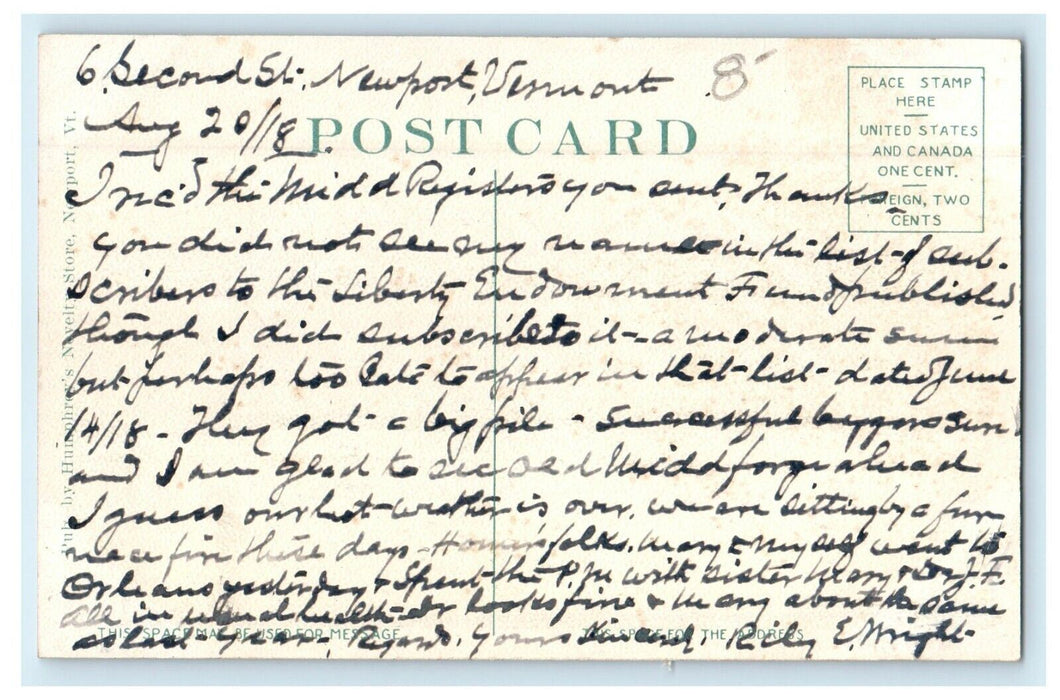 6 Second St. Newport, Vermont
8
Aug 20/18.
POST CARD
PLACE STAMP
HERE
UNITED STATES
AND CANADA
ONE CENT.
FOREIGN, TWO
CENTS
I rec'd the Midd Registers you sent, Thanks
you did not see my name in the list of sub-
scribers to the Liberty Endowment Fund published
though I did subscribe to it - a moderate sum
but perhaps too late to appear in that list - dated June
14/18 - They got a big pile - successful beggars sure
and I am glad to see Old Midd forge ahead
I guess our hot weather is over, we are sitting by a fur-
nace fire these days - folks, Mary & myself went to
Orleans yesterday & spent the P.M. with sister Mary & Dr J. F.
all in usual health - Dr looks fine & Mary about the same
as last year. Regards. Yours Riley E. Wright
THIS SPACE MAY BE USED FOR MESSAGE
THIS SPACE FOR THE ADDRESS
Pub. by Humphrey's Novelty Store, Newport, Vt.